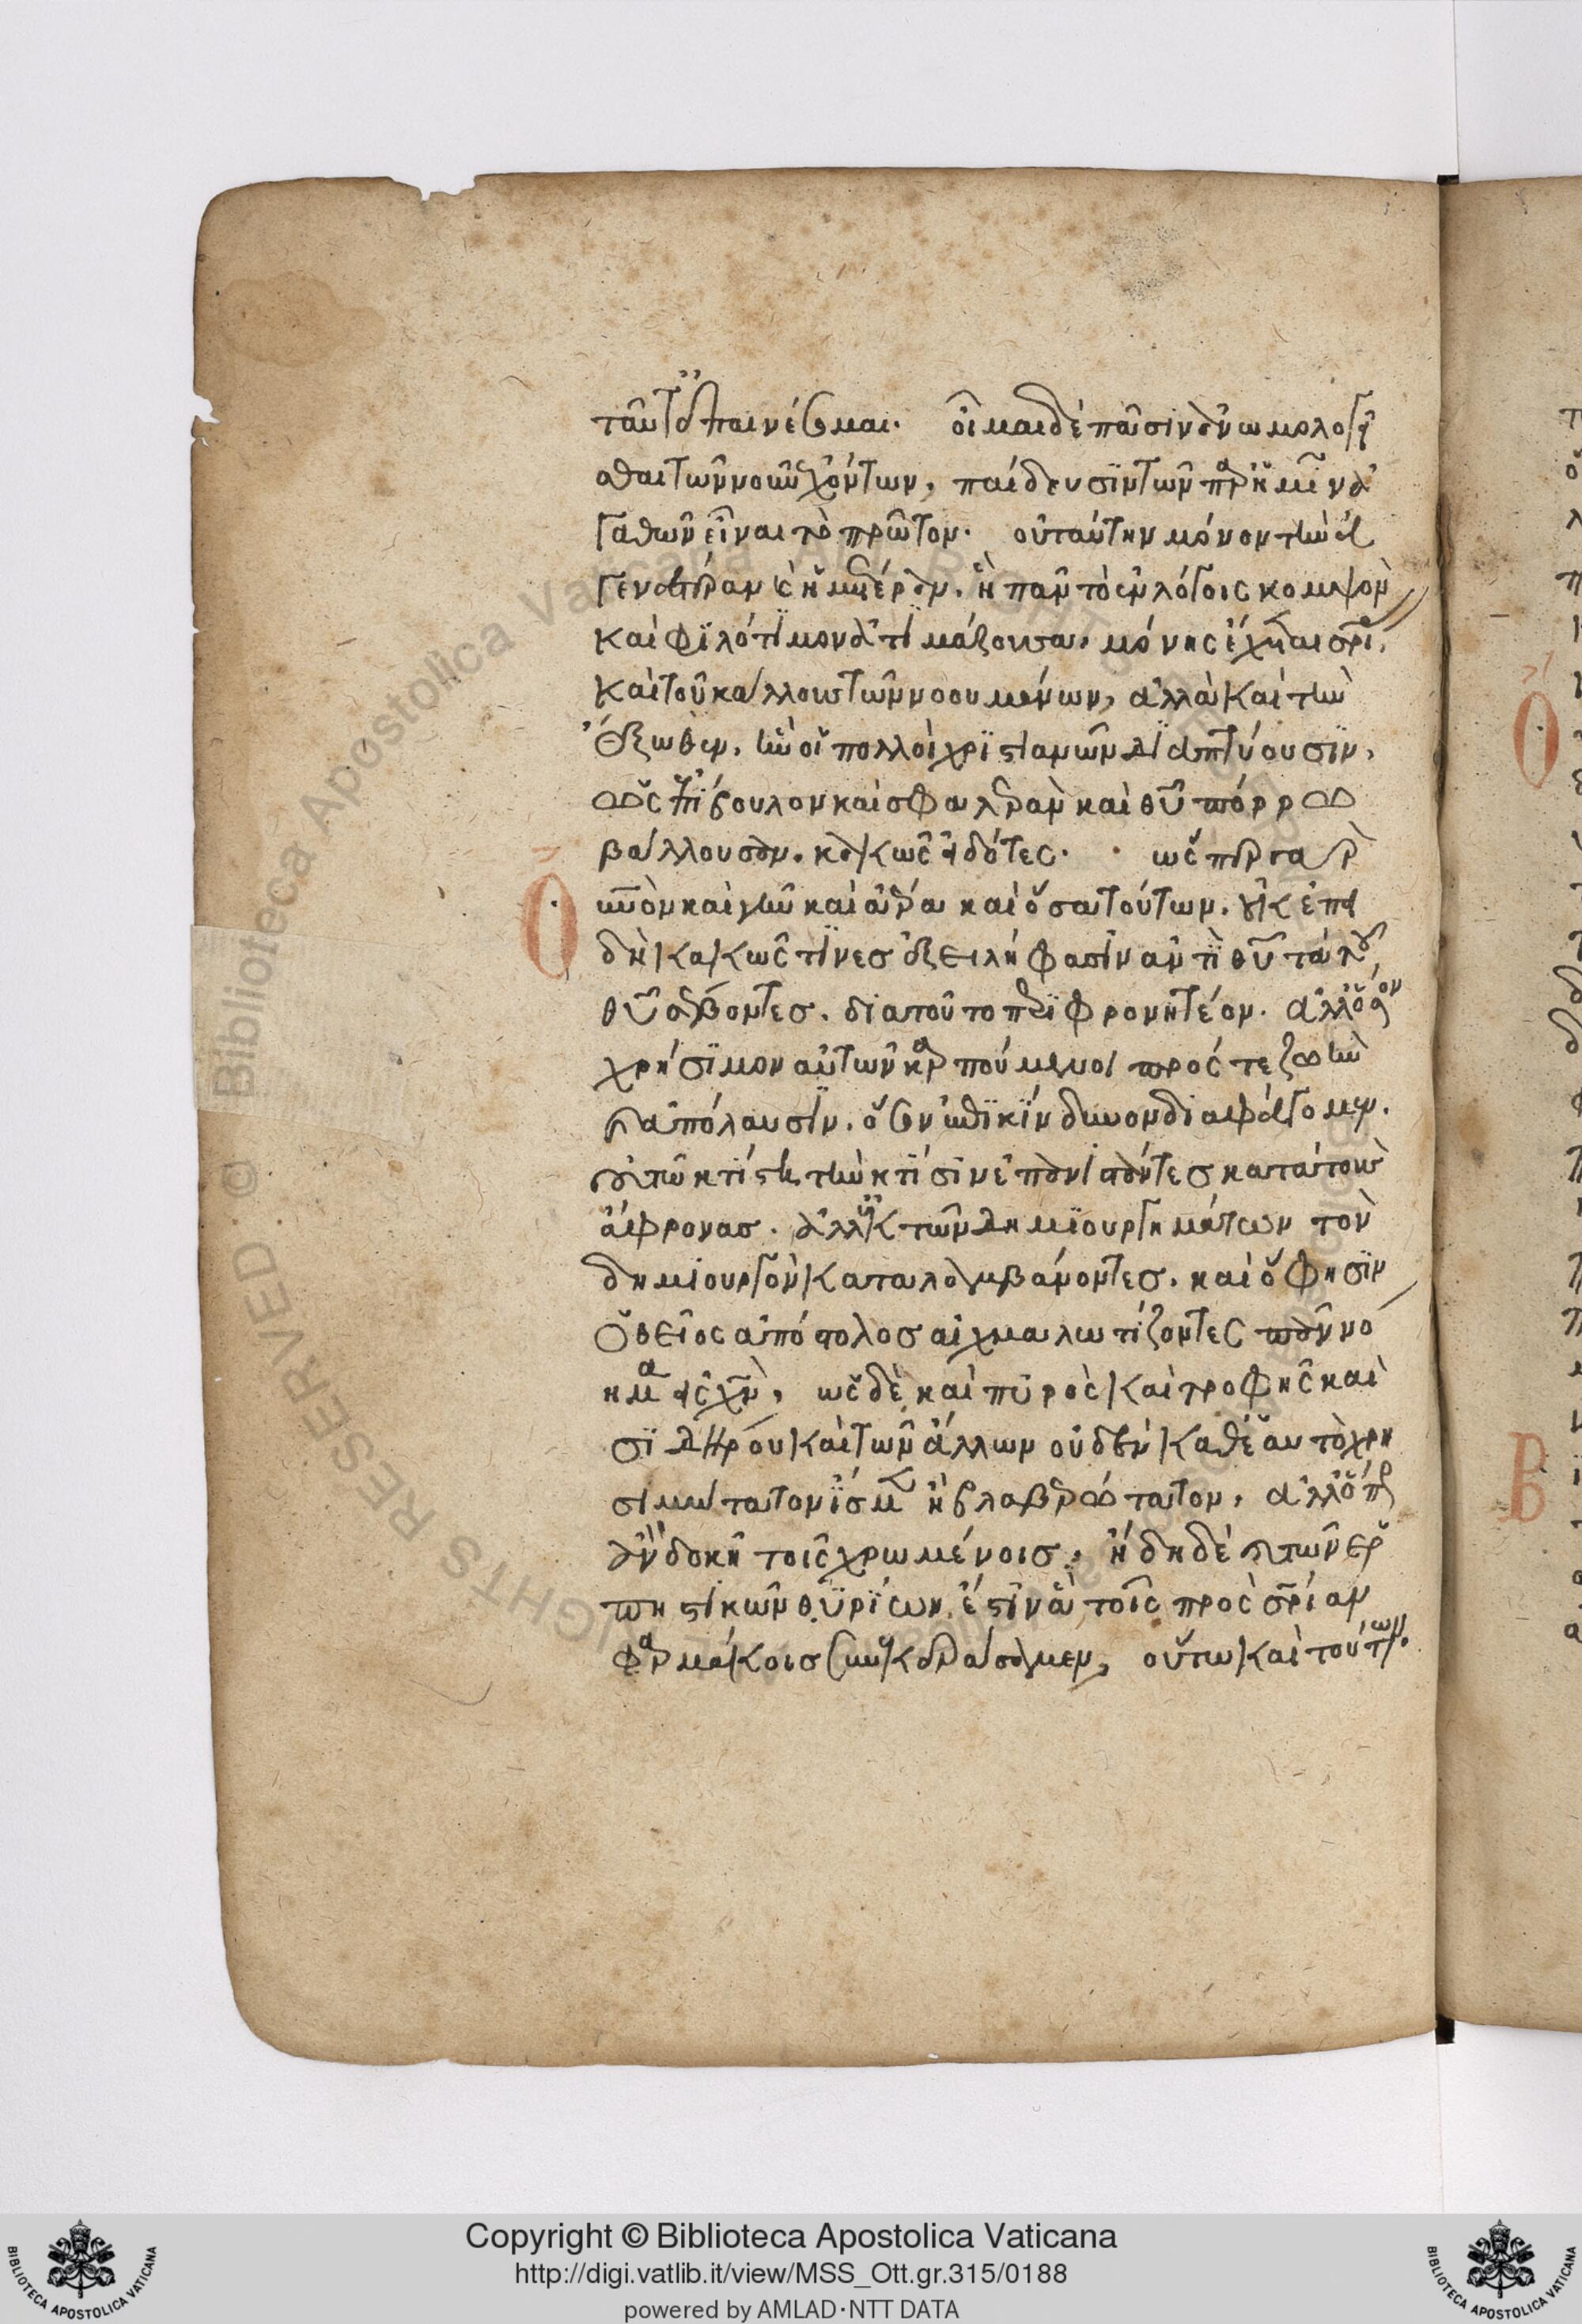 ταῦτ' ἐπαινέσομαι. οἶμαι δὲ πᾶσιν ἀνωμολογῆ
σθαι τῶν νοῦν ἐχόντων, παίδευσιν τῶν παρ' ἡμῖν ἀ
γαθῶν εἶναι τὸ πρῶτον. οὐ ταύτην μόνον τὴν εὐ
γενεστέραν καὶ ἡμετέραν. ἣ πᾶν τὸ ἐν λόγοις κομψὸν
καὶ φιλότιμον ἀτιμάζουσα, μόνης ἔχεται σωτηρίας,
καὶ τοῦ κάλλους τῶν νοουμένων, ἀλλὰ καὶ τὴν
ἔξωθεν, ἣν οἱ πολλοὶ χριστιανῶν διαπτύουσιν,
ὡς ἐπίβουλον καὶ σφαλερὰν καὶ θεοῦ πόρρω
βάλλουσαν, κακῶς εἰδότες. ὥσπερ γὰρ
οὐρανὸν καὶ γῆν καὶ ἀέρα καὶ ὅσα τούτων, οὐκ ἐπει
δὴ κακῶς τινες ἐξειλήφασιν ἀντὶ θεοῦ τὰ τοῦ
θεοῦ σέβοντες, διὰ τοῦτο περιφρονητέον. ἀλλ' ὅσον
χρήσιμον αὐτῶν καρπούμενοι πρός τε ζωὴν
καὶ ἀπόλαυσιν, ὅσον ἐπικίνδυνον διαφεύγομεν.
οὐ τῷ κτίστῃ τὴν κτίσιν ἐπανιστάντες κατὰ τοὺς
ἄφρονας. ἀλλ' ἐκ τῶν δημιουργημάτων τὸν
δημιουργὸν καταλαμβάνοντες, καὶ ὅ φησιν
ὁ θεῖος ἀπόστολος αἰχμαλωτίζοντες πᾶν νό
ημα εἰς χριστόν, ὡς δὲ καὶ πυρὸς καὶ τροφῆς καὶ
σιδήρου καὶ τῶν ἄλλων οὐδὲν καθ' ἑαυτὸ χρη
σιμώτατον ἴσμεν ἢ βλαβερώτατον, ἀλλ' ὅπως
ἂν δοκῇ τοῖς χρωμένοις, ἤδη δὲ καὶ τῶν ἑρ
πηστικῶν θηρίων, ἔστιν ἃ τοῖς πρὸς σωτηρίαν
φαρμάκοις συνεκεράσαμεν, οὕτω καὶ τούτων
Copyright © Biblioteca Apostolica Vaticana
http://digi.vatlib.it/view/MSS_Ott.gr.315/0188
powered by AMLAD·NTT DATA